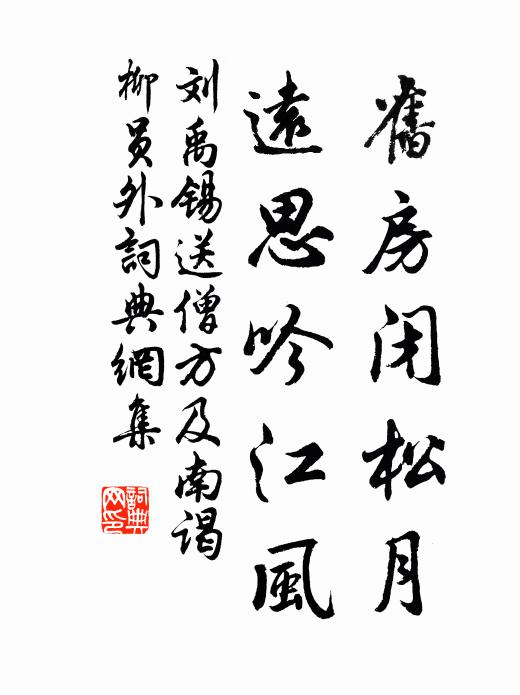 舊房闭松月
遠思吟江風
刘禹锡送僧方及南谒
柳員外詞典網集
詞典
网印